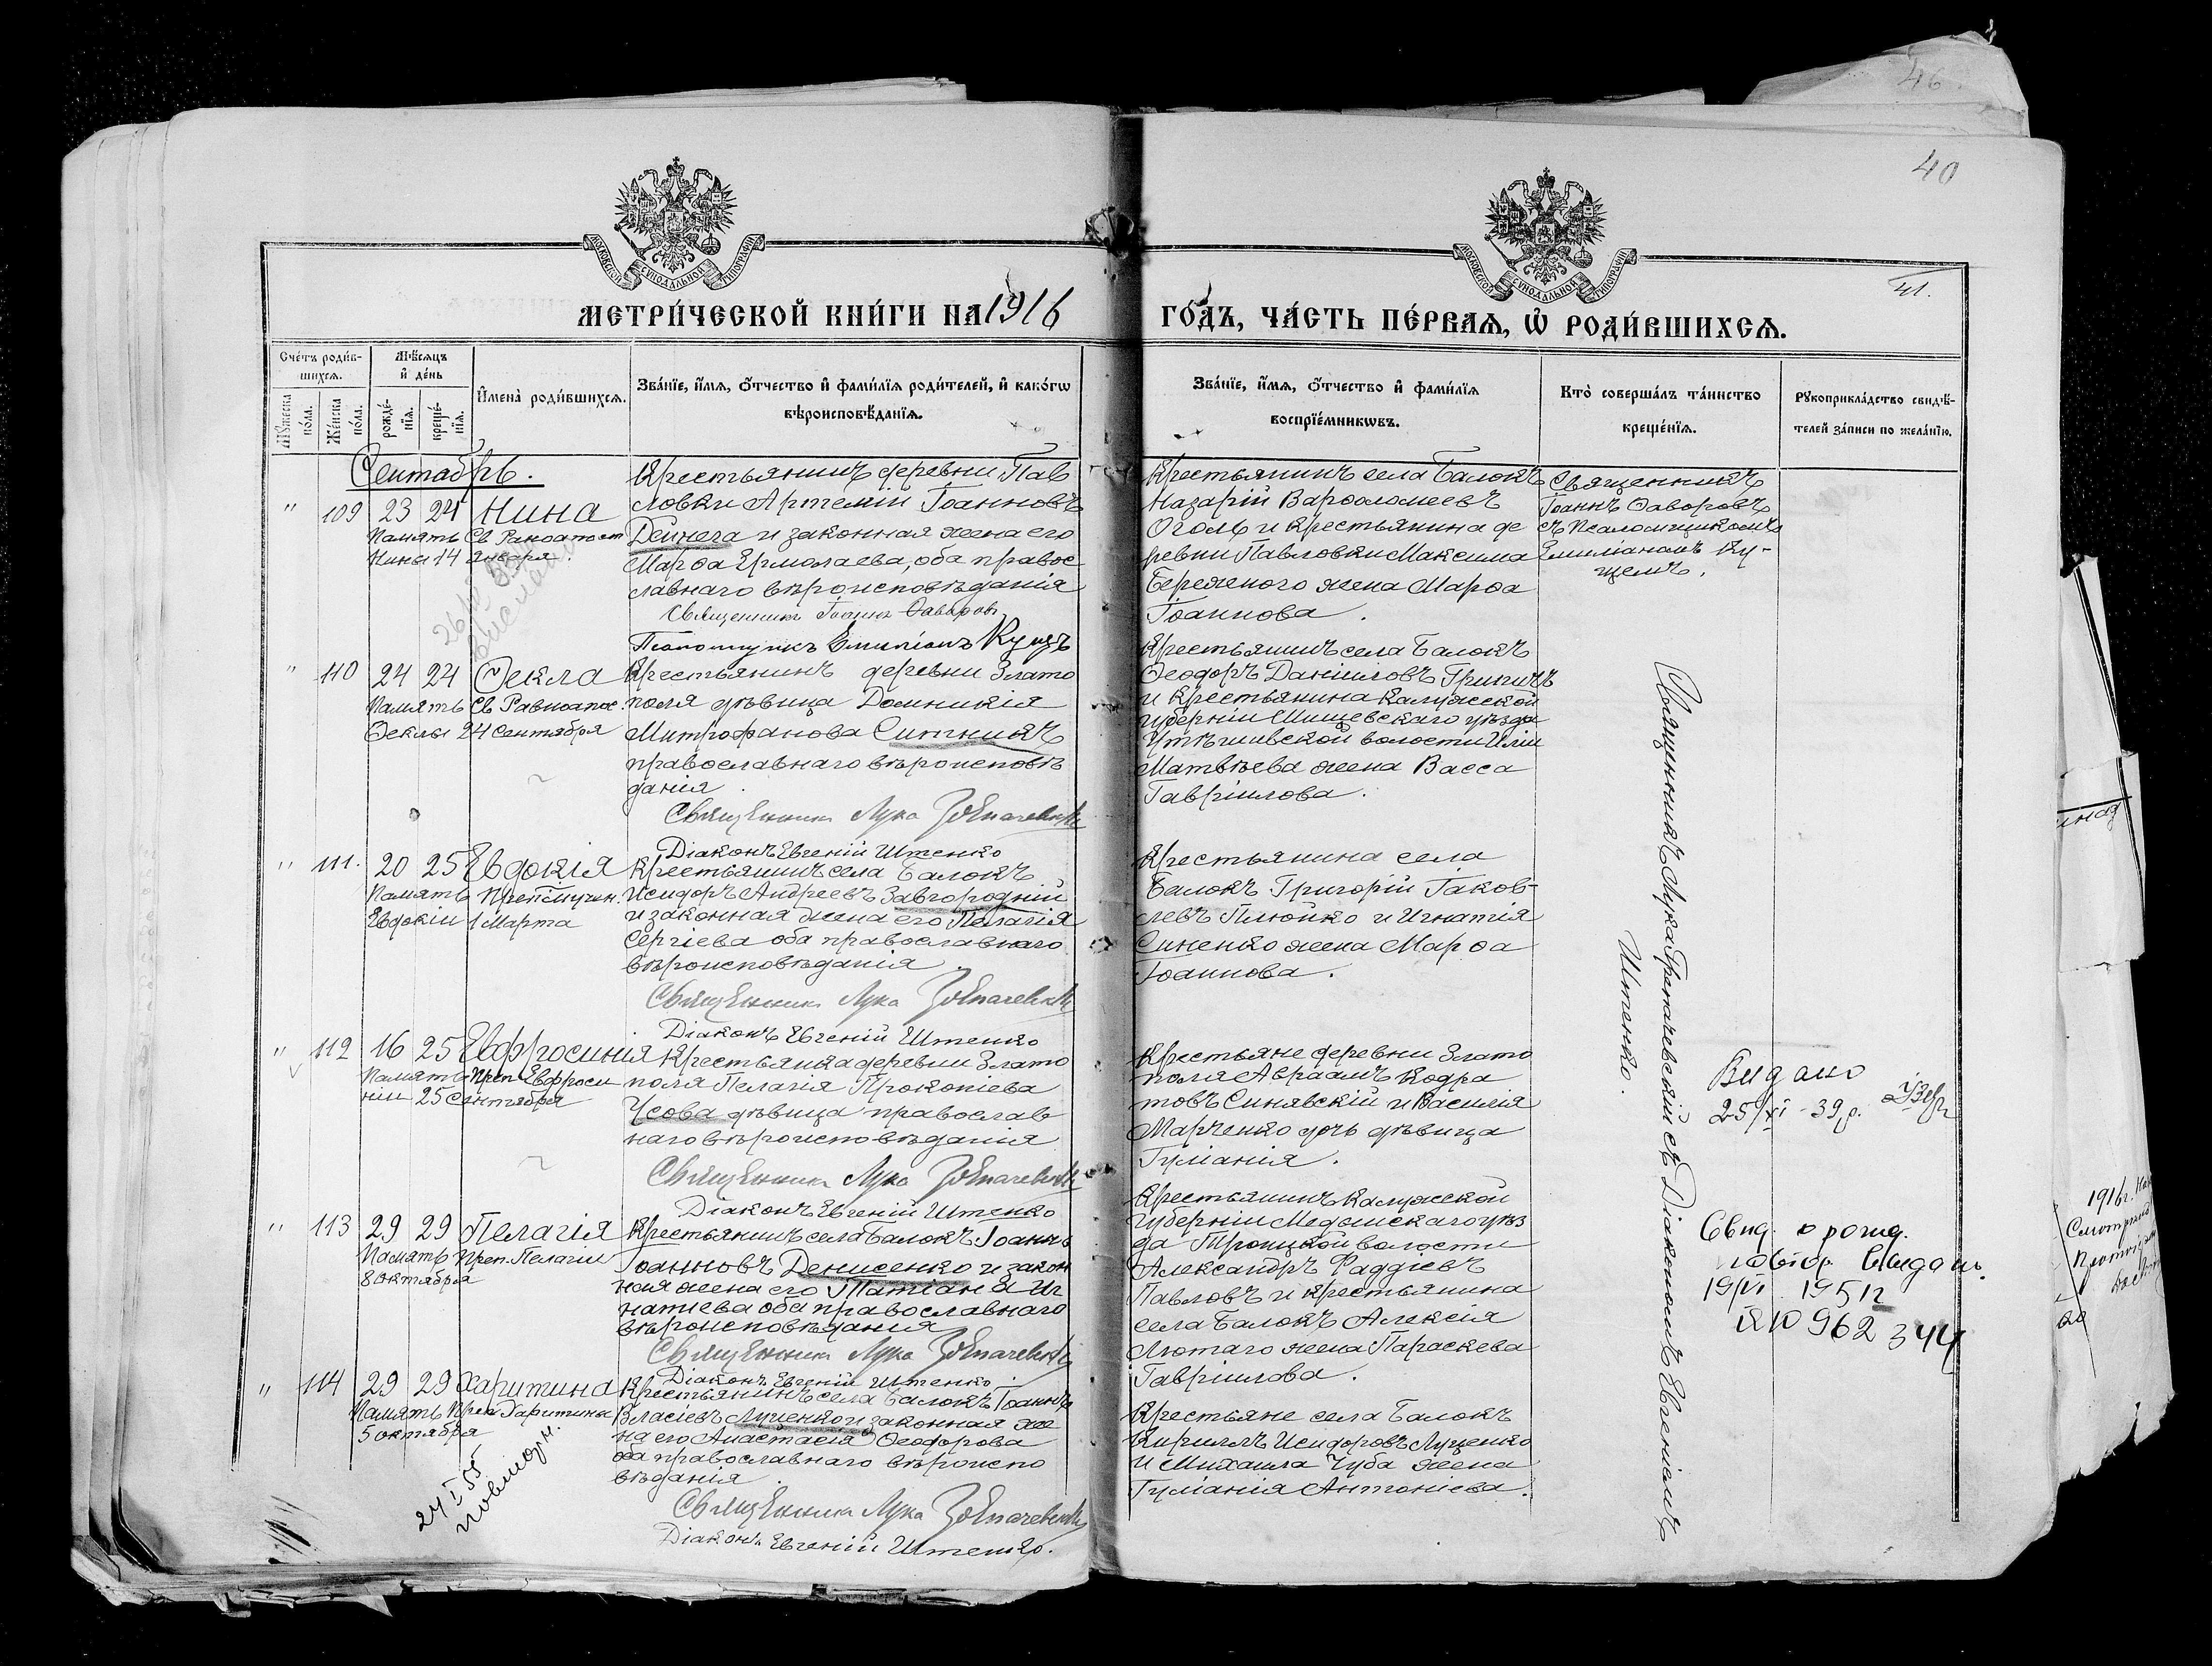 46
40
41.
МОСКОВСКОЙ СѴНОДАЛЬНОЙ ТИПОГРАФІИ
МОСКОВСКОЙ СѴНОДАЛЬНОЙ ТИПОГРАФІИ
МЕТРИ́ЧЕСКОЙ КНИ́ГИ НА 1916
ГО́ДЪ, ЧА́СТЬ ПЕ́РВАѦ, Ѽ РОДИ́ВШИХСѦ.
Сче́тъ роди́в-
шихсѧ.
Мꙋ́жеска по́ла.
Же́нска по́ла.
Мѣ́сѧцъ
и҆ де́нь
рожде́-
нїѧ.
креще́-
нїѧ.
И҆мена̀ роди́вшихсѧ.
Зва́нїе, и҆́мѧ, ѻ҆́тчество и҆ фами́лїѧ роди́телей, и҆ како́гѡ
вѣроисповѣ́данїѧ.
Зва́нїе, и҆́мѧ, ѻ҆́тчество и҆ фами́лїѧ
воспрїе́мникѡвъ.
Кто̀ соверша́лъ та́инство
креще́нїѧ.
Рꙋкоприкла́дство свидѣ́-
телей за́писи по жела́нїю.
Сентябрь.
" 109 23 24 Нина
Память Св Равноапост
Нины 14 Января.
Крестьянинъ деревни Пав
ловки Артемій Іоанновъ
Дейнега и законная жена его
Марѳа Ермолаева, оба правос
лавнаго вѣроисповѣданія
Священникъ Іоаннъ Ѳаворовъ
Псаломщикъ Емиліанъ Кущъ
Крестьянинъ села Балокъ
Назарій Варѳоломеевъ
Оголь и крестьянина де
ревни Павловки Максима
Бережного жена Марѳа
Іоаннова.
Священникъ
Іоаннъ Ѳаворовъ
съ Псаломщикомъ
Емиліаномъ Ку-
щемъ.
" 110 24 24 Ѳекла
Память Св Равноапос.
Ѳеклы 24 Сентября
Крестьянинъ деревни Злато
поля дѣвица Домникія
Митрофанова Ситникъ
православнаго вѣроисповѣ
данія.
Священникъ Лука
Діаконъ Евгеній Штенко
Крестьянинъ села Балокъ
Ѳеодоръ Даніиловъ
и Крестьянина Калужской
губерніи уѣзда
волости Иліи
Матвѣева жена Васса
Гавріилова.
" 111. 20 25 Евдокія
Память Препмучен.
Евдокіи 1 Марта
Крестьянинъ села Балокъ
Исидоръ Андреевъ Завгородній
и законная жена его Пелагія
Сергіева оба православнаго
вѣроисповѣданія.
Священникъ Лука
Діаконъ Евгеній Штенко
Крестьянина села
Балокъ Григорій Іаков-
левъ Плюйко и Игнатія
Синенко жена Марѳа
Іоаннова.
" 112 16 25 Евфросинія
Память Преп Евфроси
ніи 25 Сентября
Крестьянка деревни Злато
поля Пелагія Прокопіева
Усова дѣвица православ
наго вѣроисповѣданія
Священникъ Лука
Діаконъ Евгеній Штенко
Крестьяне деревни Злато
поля Авраамъ Кодра
товъ Синявскій и Василія
Марченко дочь дѣвица
Гуліанія.
Видано
25/XI - 39 р.
" 113 29 29 Пелагія
Память Преп. Пелагіи
8 Октября
Крестьянинъ села Балокъ Іоаннъ
Іоанновъ Денисенко и закон
ная жена его Татіана Иг
натіева оба православнаго
вѣроисповѣданія
Священникъ Лука
Діаконъ Евгеній Штенко
Крестьянинъ Калужской
губерніи Медынскаго уѣз
да Троицкой волости
Александръ Фаддіевъ
Павловъ и крестьянина
села Балокъ Алексія
Лютаго жена Параскева
Гавріилова.
Свид. о рожд.
повтор.
19/VI 1951 г
962344
" 114 29 29 Харитина
Память Преп Харитины
5 октября
Крестьянинъ села Балокъ Іоаннъ
Власіевъ Луценко и законная же
на его Анастасія Ѳеодорова
оба православнаго вѣроиспо
вѣданія.
Священникъ Лука
Діаконъ Евгеній Штенко.
Крестьяне села Балокъ
Кириллъ Исидоровъ Луценко
и Михаила Чуба жена
Гуліанія Антоніева.
24/I 55
повторн.
Священникъ Лука съ Діакономъ Евгеніемъ
Штенко.
1916 г.